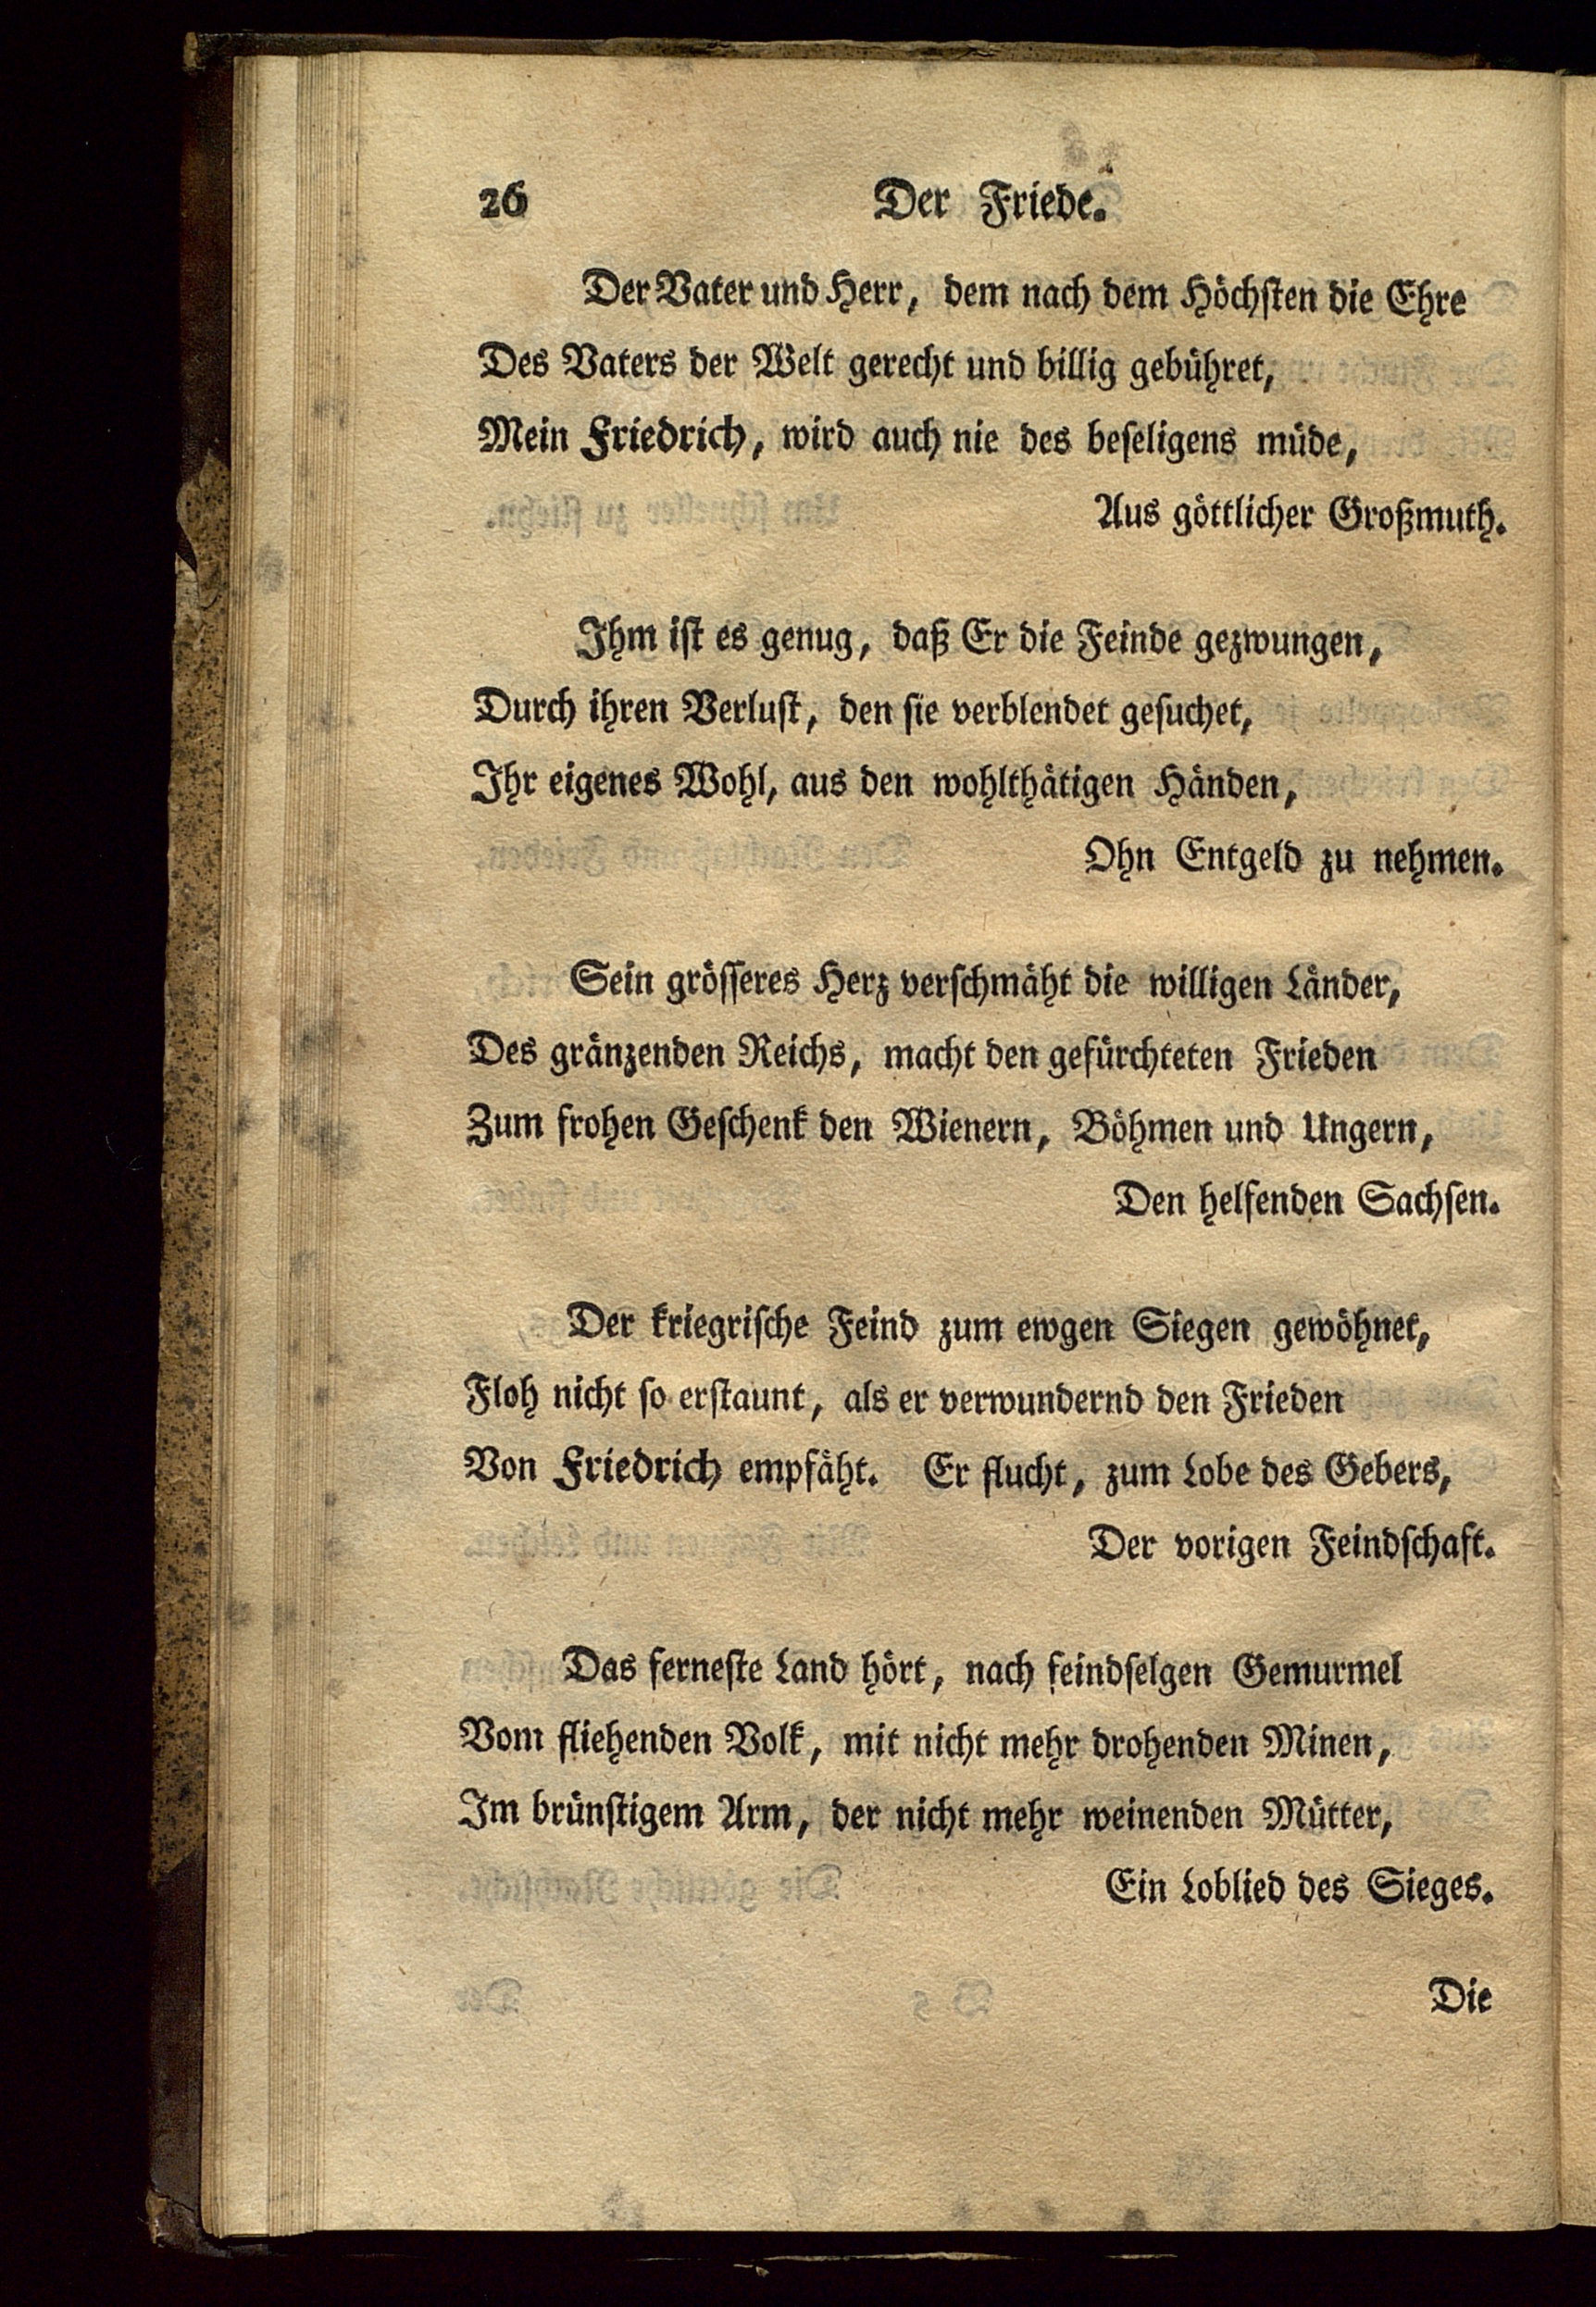 26 Der Friede.
Der Vater und Herr, dem nach dem Höchsten die Ehre
Des Vaters der Welt gerecht und billig gebühret,
Mein Friedrich, wird auch nie des beseligens müde,
Aus göttlicher Großmuth.
Ihm ist es genug, daß Er die Feinde gezwungen,
Durch ihren Verlust, den sie verblendet gesuchet,
Ihr eigenes Wohl, aus den wohlthätigen Händen,
Ohn Entgeld zu nehmen.
Sein grösseres Herz verschmäht die willigen Länder,
Des gränzenden Reichs, macht den gefürchteten Frieden
Zum frohen Geschenk den Wienern, Böhmen und Ungern,
Den helfenden Sachsen.
Der kriegrische Feind zum ewgen Siegen gewöhnet,
Floh nicht so erstaunt, als er verwundernd den Frieden
Von Friedrich empfäht. Er flucht, zum Lobe des Gebers,
Der vorigen Feindschaft.
Das ferneste Land hört, nach feindselgen Gemurmel
Vom fliehenden Volk, mit nicht mehr drohenden Minen,
Im brünstigem Arm, der nicht mehr weinenden Mütter,
Ein Loblied des Sieges.
Die